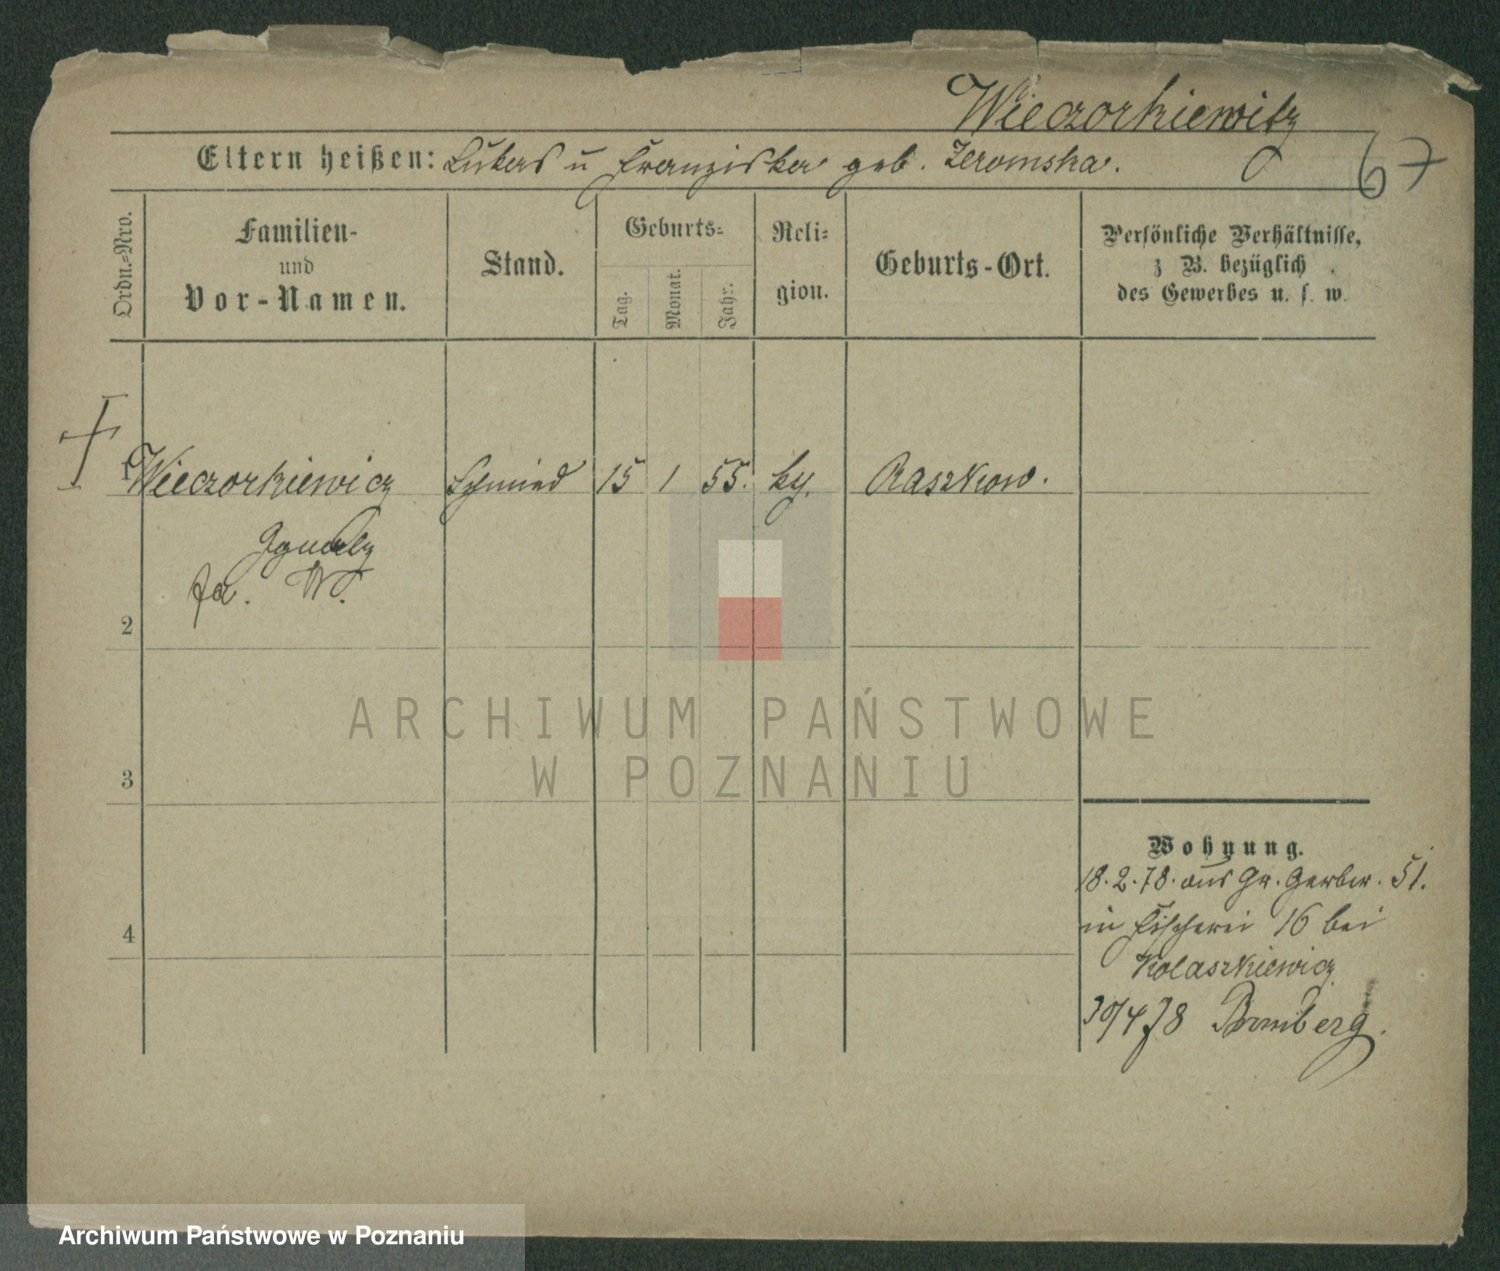 Wieczorkiewitz
67
Eltern heißen: Lukas u Franziska geb. Zeromska.
Ordn.=Nro.
Familien-
und
Vor-Namen.
Stand.
Geburts=
Tag.
Monat.
Jahr.
Reli=
gion.
Geburts-Ort.
Persönliche Verhältnisse,
z B. bezüglich
des Gewerbes u. s. w.
1 Wieczorkiewicz Schmied 15 1 55. Raszkow.
Ignatz
W.
2
3
4
Wohnung.
18.2.78. aus Gr. Gerber. 51.
in Fischerei 16 bei
Kolaszkiewicz
30/4 78 Bromberg.
ARCHIWUM PAŃSTWOWE
W POZNANIU
Archiwum Państwowe w Poznaniu